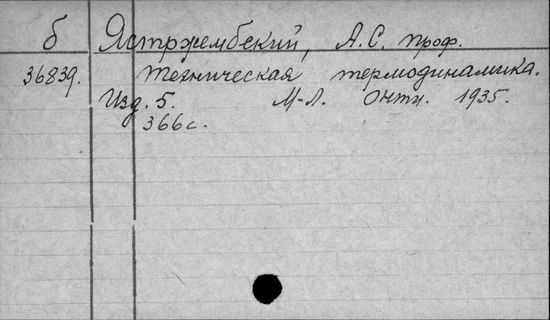 б Ястржембский, А.С. проф.
36839. Техническая термодинамика.
Изд. 5. М-Л. Онти. 1935.
366с.